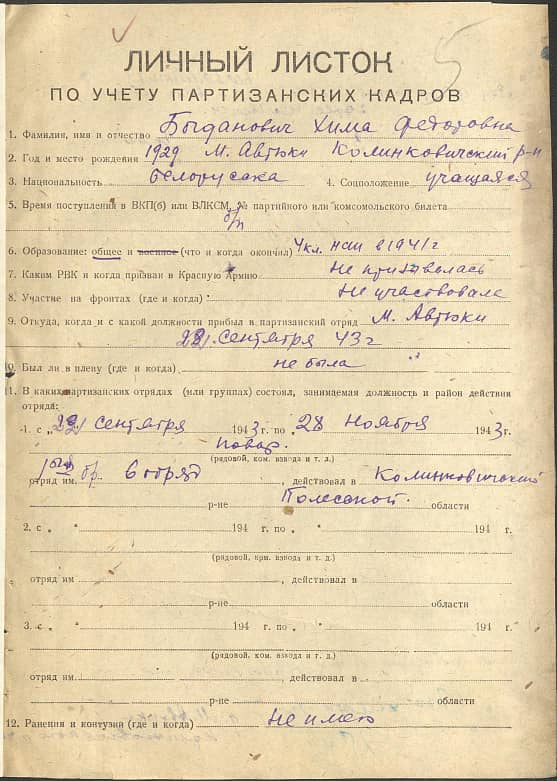 ЛИЧНЫЙ ЛИСТОК
ПО УЧЕТУ ПАРТИЗАНСКИХ КАДРОВ
1. Фамилия, имя и отчество Быданович Хима Федоровна
2. Год и место рождения 1929 М. Автюки Колинковичский р-н
3. Национальность белоруська 4. Соцположение учащаяся
5. Время поступления в ВКП(б) или ВЛКСМ, № партийного или комсомольского билета
б/п
6. Образование: общее и военное (что и когда окончил) 4 кл. нсш в 1941 г
7. Каким РВК и когда призван в Красную Армию не призывалась
8. Участие на фронтах (где и когда) Не участвовала
9. Откуда, когда и с какой должности прибыл в партизанский отряд М. Автюки
сентября 43 г
10. Был ли в плену (где и когда) не была
11. В каких партизанских отрядах (или группах) состоял, занимаемая должность и район действия
отряда:
1. с „ сентября 1943 г. по „28 Ноября 1943 г.
повар.
(рядовой, ком. взвода и т. д.)
отряд им. бр. 6 отряд, действовал в Колинковичский
р-не Полесской области
2. с „ “ 194 г. по „ “ 194 г.
(рядовой, ком. взвода и т. д.)
отряд им , действовал в
р-не области
3. с „ “ 194 г. по „ “ 194 г.
(рядовой, ком. взвода и т. д.)
отряд им. , действовал в
р-не области
12. Ранения и контузии (где и когда) не имею